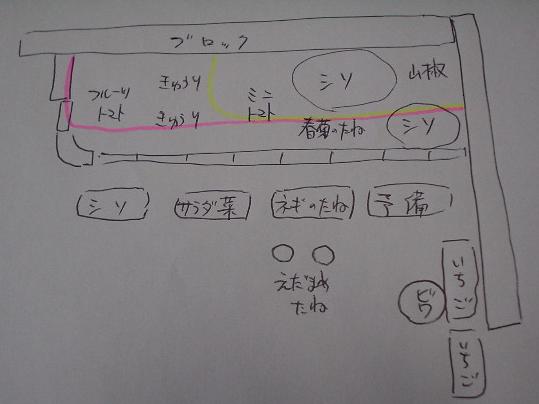 ブロック
フルーツ
トマト
きゅうり
きゅうり
ミニ
トマト
シソ
山椒
春菊のたね
シソ
シソ
サラダ菜
ネギのたね
予備
えだまめ
たね
ビワ
いちご
いちご